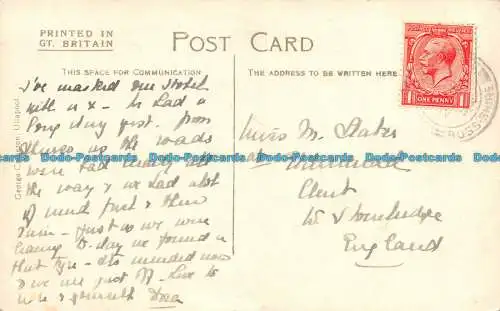 PRINTED IN
GT. BRITAIN
POST CARD
THIS SPACE FOR COMMUNICATION
THE ADDRESS TO BE WRITTEN HERE
POSTAGE REVENUE
1 ONE PENNY 1
ROSS-SHIRE
I've marked our hotel
with a x - We had a
long day yest. from
the roads
were bad nearly all
the way & we had a lot
of wind first & then
rain - just as we were
leaving to-day we found a
flat tyre - its mended now
& we are just off. Love to
& yourself Dora
Miss M. Slater
Clent
Nr Stourbridge
England
Dodo-Postcards Dodo-Postcards Dodo-Postcards Dodo-Postcards Dodo-Postcards Dodo-Postcards